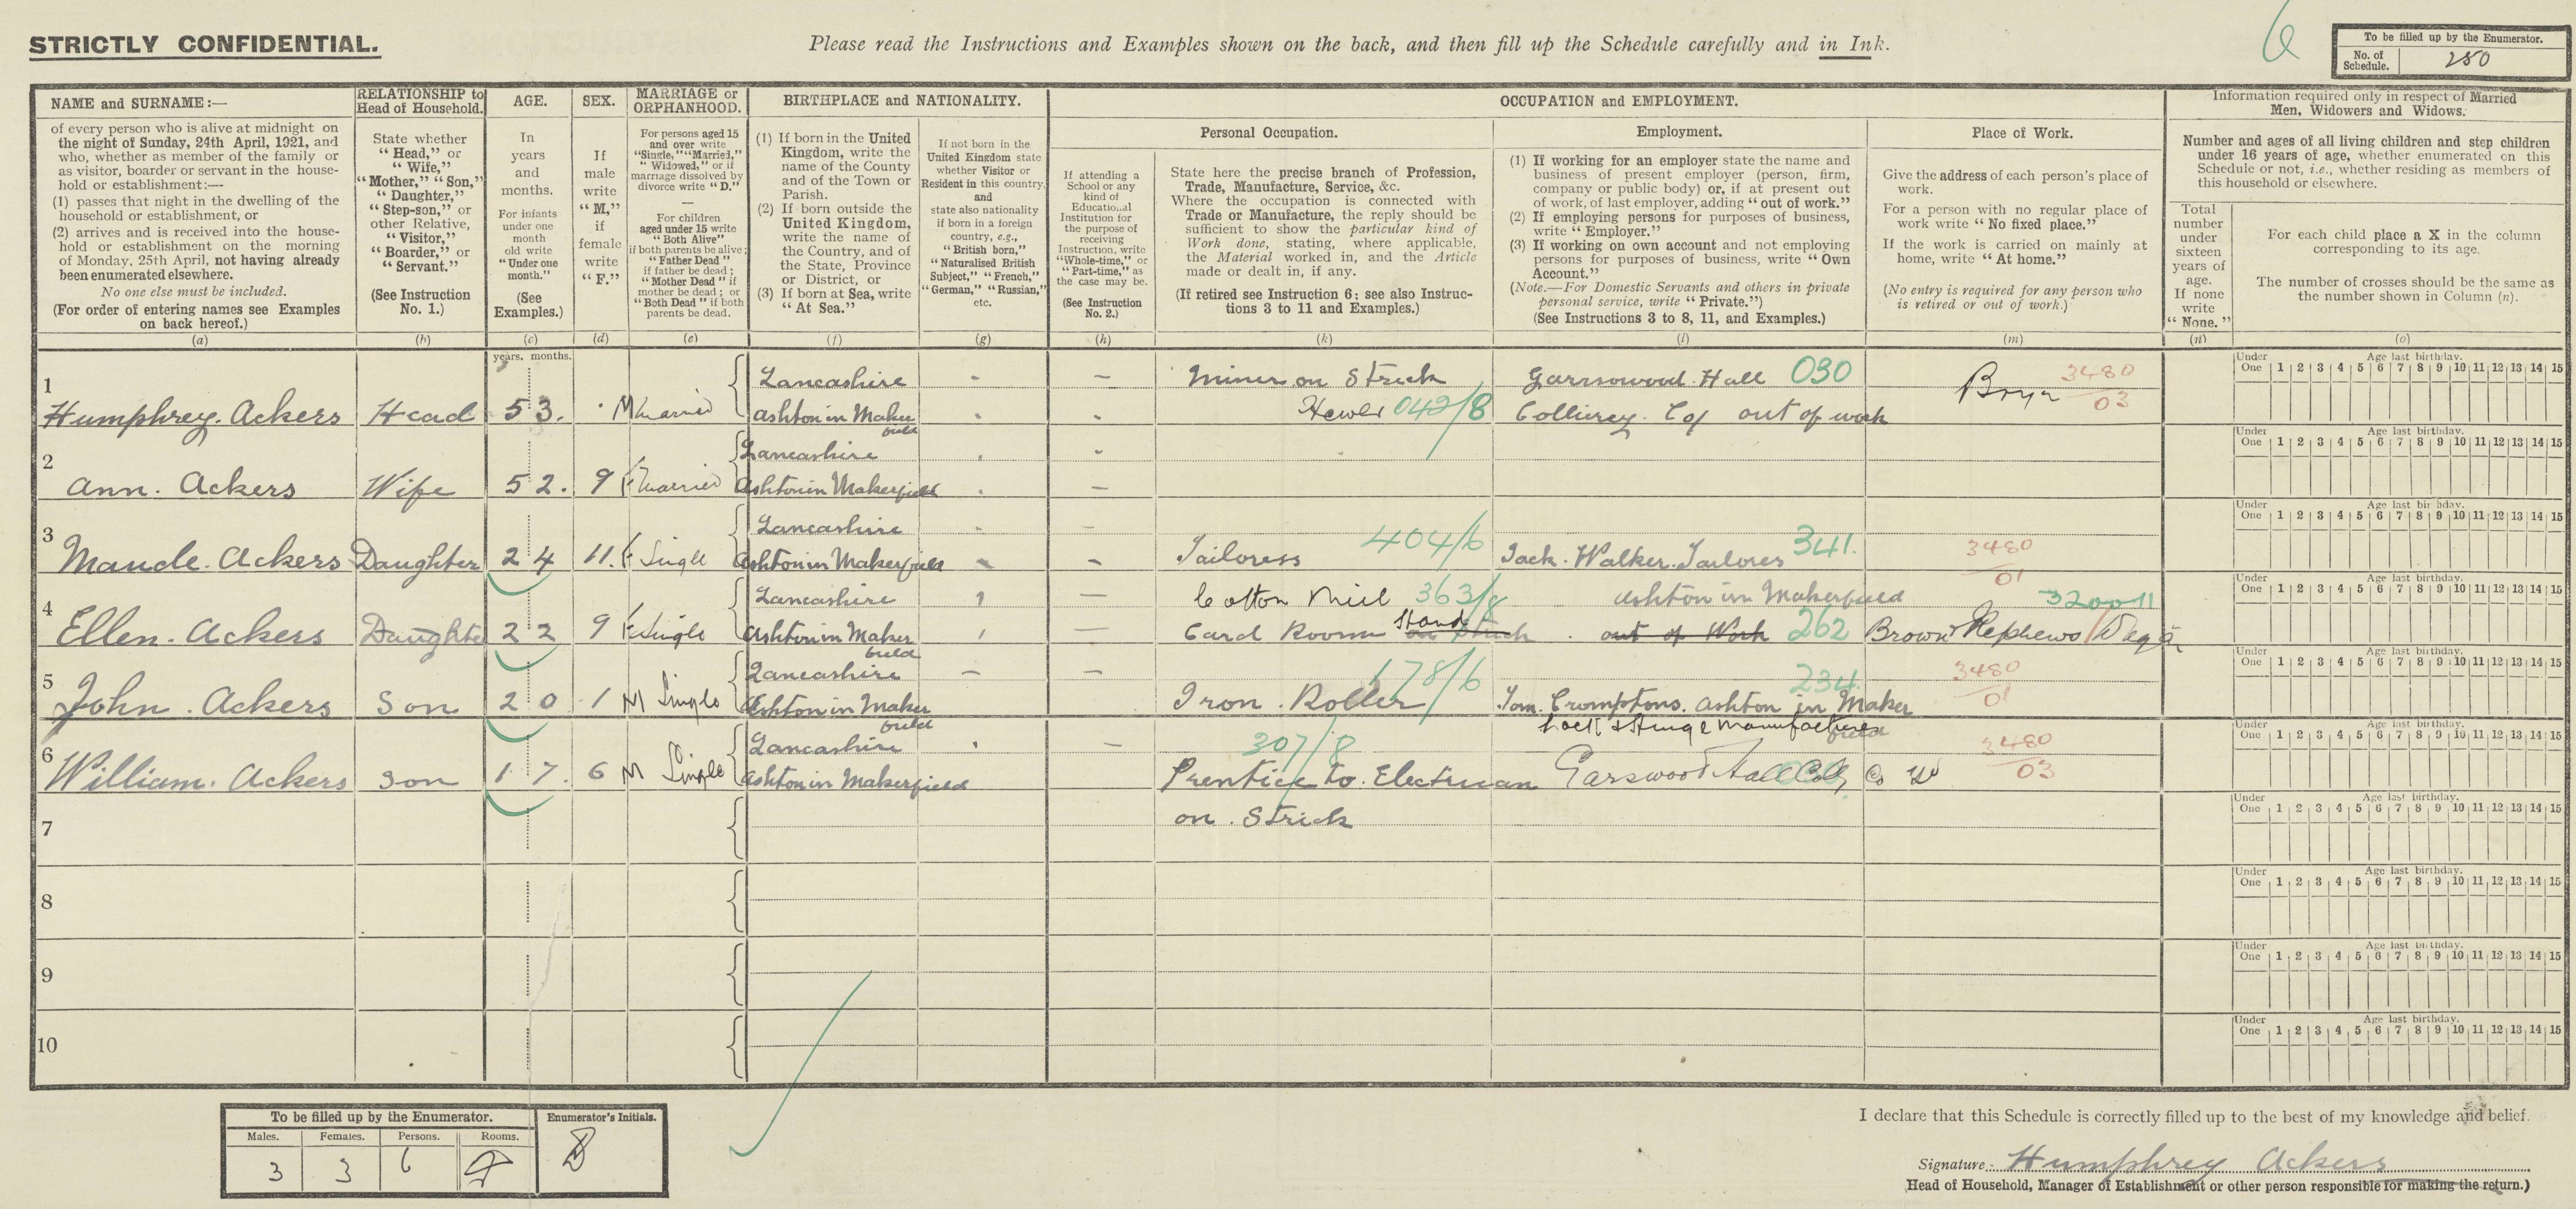 STRICTLY CONFIDENTIAL.
Please read the Instructions and Examples shown on the back, and then fill up the Schedule carefully and in Ink.
6
To be filled up by the Enumerator.
No. of Schedule. 250
NAME and SURNAME:—
of every person who is alive at midnight on
the night of Sunday, 24th April, 1921, and
who, whether as member of the family or
as visitor, boarder or servant in the house-
hold or establishment:—
(1) passes that night in the dwelling of the
household or establishment, or
(2) arrives and is received into the house-
hold or establishment on the morning
of Monday, 25th April, not having already
been enumerated elsewhere.
No one else must be included.
(For order of entering names see Examples
on back hereof.)
(a)
RELATIONSHIP to
Head of Household.
State whether
"Head," or
"Wife,"
"Mother," "Son,"
"Daughter,"
"Step-son," or
other Relative,
"Visitor,"
"Boarder," or
"Servant."
(See Instruction
No. 1.)
(b)
AGE.
In
years
and
months.
For infants
under one
month
old write
"Under one
month."
(See
Examples.)
(c)
years. months.
SEX.
If
male
write
"M,"
if
female
write
"F."
(d)
MARRIAGE or
ORPHANHOOD.
For persons aged 15
and over write
"Single," "Married,"
"Widowed," or if
marriage dissolved by
divorce write "D."
—
For children
aged under 15 write
"Both Alive"
if both parents be alive;
"Father Dead"
if father be dead;
"Mother Dead" if
mother be dead; or
"Both Dead" if both
parents be dead.
(e)
BIRTHPLACE and NATIONALITY.
(1) If born in the United
Kingdom, write the
name of the County
and of the Town or
Parish.
(2) If born outside the
United Kingdom,
write the name of
the Country, and of
the State, Province
or District, or
(3) If born at Sea, write
"At Sea."
(f)
If not born in the
United Kingdom state
whether Visitor or
Resident in this country,
and
state also nationality
if born in a foreign
country, e.g.,
"British born,"
"Naturalised British
Subject," "French,"
"German," "Russian,"
etc.
(g)
OCCUPATION and EMPLOYMENT.
If attending a
School or any
kind of
Educational
Institution for
the purpose of
receiving
Instruction, write
"Whole-time," or
"Part-time," as
the case may be.
(See Instruction
No. 2.)
(h)
Personal Occupation.
State here the precise branch of Profession,
Trade, Manufacture, Service, &c.
Where the occupation is connected with
Trade or Manufacture, the reply should be
sufficient to show the particular kind of
Work done, stating, where applicable,
the Material worked in, and the Article
made or dealt in, if any.
(If retired see Instruction 6; see also Instruc-
tions 3 to 11 and Examples.)
(k)
Employment.
(1) If working for an employer state the name and
business of present employer (person, firm,
company or public body) or, if at present out
of work, of last employer, adding "out of work."
(2) If employing persons for purposes of business,
write "Employer."
(3) If working on own account and not employing
persons for purposes of business, write "Own
Account."
(Note.—For Domestic Servants and others in private
personal service, write "Private.")
(See Instructions 3 to 8, 11, and Examples.)
(l)
Place of Work.
Give the address of each person's place of
work.
For a person with no regular place of
work write "No fixed place."
If the work is carried on mainly at
home, write "At home."
(No entry is required for any person who
is retired or out of work.)
(m)
Information required only in respect of Married
Men, Widowers and Widows.
Number and ages of all living children and step children
under 16 years of age, whether enumerated on this
Schedule or not, i.e., whether residing as members of
this household or elsewhere.
Total
number
under
sixteen
years of
age.
If none
write
"None."
(n)
For each child place a X in the column
corresponding to its age.
The number of crosses should be the same as
the number shown in Column (n).
(o)
Under One Age last birthday. 1 2 3 4 5 6 7 8 9 10 11 12 13 14 15
1 Lancashire - — Miner on Strick Garrsowood Hall 030 Bryn 3480
Humphrey. Ackers Head 53. M married Ashton in Maker Hewer 042/8 Colliery. Co/ out of work 03
field
Under One Age last birthday. 1 2 3 4 5 6 7 8 9 10 11 12 13 14 15
2 Lancashire
Ann. Ackers Wife 52. 9 F married Ashton in Makerfield
Under One Age last birthday. 1 2 3 4 5 6 7 8 9 10 11 12 13 14 15
3 Lancashire 404/6
Maude. Ackers Daughter 24 11. F Single Ashton in Makerfield Tailoress Jack. Walker. Tailores 341. 3480
01
Under One Age last birthday. 1 2 3 4 5 6 7 8 9 10 11 12 13 14 15
4 Lancashire Cotton Mill 363/8 Ashton in Makerfield 320011
Ellen. Ackers Daughte 22 9 F Single Ashton in Maker Card Room on Strick out of Work 262 Brown Nephews
field
Under One Age last birthday. 1 2 3 4 5 6 7 8 9 10 11 12 13 14 15
5 Lancashire 178/6 234 3480
John. Ackers Son 20 1 M Single Ashton in Maker Iron. Roller Tom. Cromptons. Ashton in Maker 01
field Lock & Hinge Manufacturers field
Under One Age last birthday. 1 2 3 4 5 6 7 8 9 10 11 12 13 14 15
6 Lancashire 307/8 3480
William. Ackers Son 17. 6 M Single Ashton in Makerfield Prentice to. Electrician Garswood Hall Coll, Co 03
Under One Age last birthday. 1 2 3 4 5 6 7 8 9 10 11 12 13 14 15
7 on. Strick
Under One Age last birthday. 1 2 3 4 5 6 7 8 9 10 11 12 13 14 15
8
Under One Age last birthday. 1 2 3 4 5 6 7 8 9 10 11 12 13 14 15
9
Under One Age last birthday. 1 2 3 4 5 6 7 8 9 10 11 12 13 14 15
10
To be filled up by the Enumerator.
Males. Females. Persons. Rooms.
3 3 6
Enumerator's Initials.
I declare that this Schedule is correctly filled up to the best of my knowledge and belief.
Signature Humphrey Ackers
Head of Household, Manager of Establishment or other person responsible for making the return.)